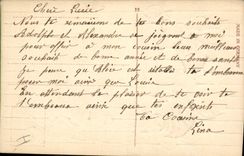 Cher
Nous te remercions de tes bons souhaits
Adolphe et Alexandre se joignent a moi
pour offrir a mon cousin leurs meilleurs
souhait de bonne année et de bonne santé
Je pense que Alice est t'embrasse
pour moi ainsi que Louise
En attendant le plaisir de te voir je
t'embrasse ainsi que tes enfants
ta Cousine
Lina